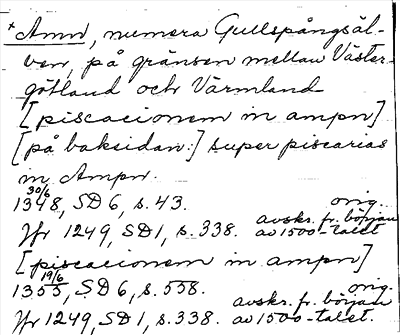 *Amn, numera Gullspångsäl-
ven, på gränsen mellan Väster-
götland och Värmland
[piscacionem in ampn]
[på baksidan:] super piscarias
in Ampn.
30/6
1348, SD 6, s. 43. orig.
Jfr 1249, SD 1, s. 338. avskr. fr. början av 1500-talet
[piscacionem in ampn]
19/6
1353, SD 6, s. 558. orig.
Jfr 1249, SD 1, s. 338. avskr. fr. början av 1500-talet.